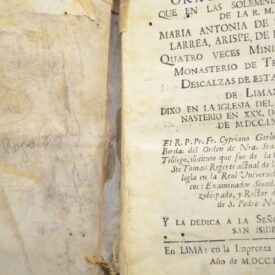 QUE EN LAS SOLEMNE
DE LA R. M.
MARIA ANTONIA DE
LARREA, ARISPE, DE
QUATRO VECES MINI
MONASTERIO DE TR
DESCALZAS DE ESTA
DE LIMA
DIXO EN LA IGLESIA DEL
NASTERIO EN XXX. D
DE MDCCLX
El R. P. Pr. Fr. Cypriano Gerón
Borda. del Orden de Nra. Sra
Tobiogo, sostituto que fue de la
Sto Tomas Regente actual de
logia en la Real Univers
ces: Examinador Sinod
zobispado, y Rector d
de S. Pedro N
Y LA DEDICA A LA SEÑO
SAN ISID
En LIMA: en la Imprenta
Año de MDCC